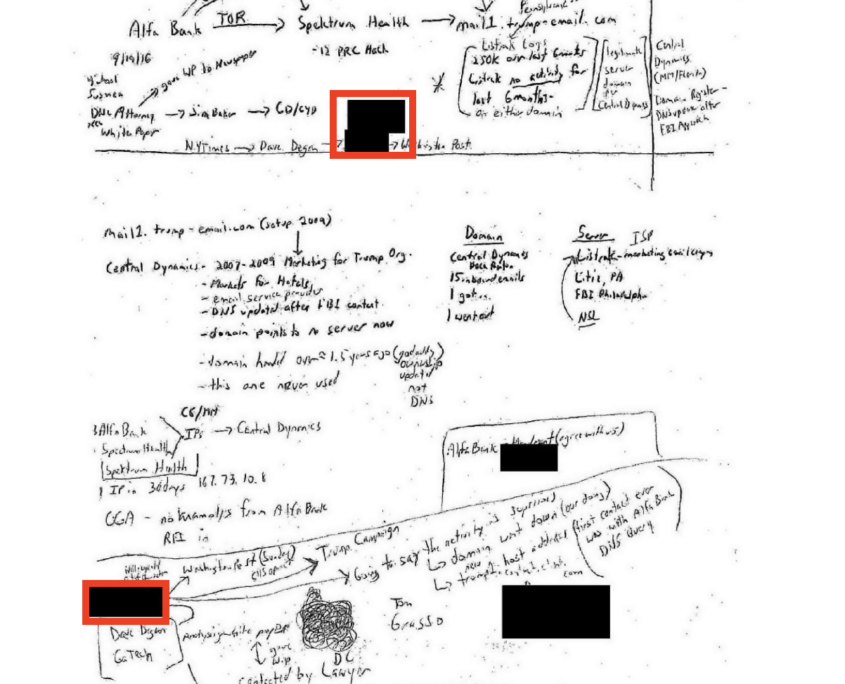 Alfa Bank TOR Spektrum Health mail1.trump-email.com
-12 PRC Hack
9/19/16
DNC Attorney Jim Baker CD/CYD
White Paper
gave WP to Newspaper
Listrak Logs
150K over last 6 months
Listrak no activity for
last 6 months-
on either domain
legitimate
server
domain
Central Dynamics
Central
Dynamics
Domain Register-
DNS update after
FBI Approach
NYTimes Dave Dagon Washington Post
mail1.trump-email.com (setup 2009)
Central Dynamics- 2007-2009 Marketing for Trump Org.
- Markets for Hotels,
- email service provider
- DNS updated after FBI contact
- domain points to no server now
- domain handed over 1.5 years ago (godaddy
ownership
updated
not
DNS
- this one never used
Domain
Central Dynamics
Boca Raton
15 inbound emails
1 got in
1 went out
Server ISP
Listrak-marketing email
Litiz, PA
FBI Philadelphia
NSL
3 Alfa Bank
Spectrum Health
Spektrum Health
IPs Central Dynamics
1 IP in 30 days 167.73.10.8
GGA - no from Alfa Bank
RFI in
Alfa Bank - Mandiant (agree with us)
Washington Post (Sunday)
Trump Campaign
Going to say the activity is suspicious
domain went down (our doing)
new host added (first contact ever
was with Alfa Bank
DNS Query
Dave Dagon
GaTech
Analysis white paper
gave
WP
DC
contacted by Lawyer
Tom
Grasso